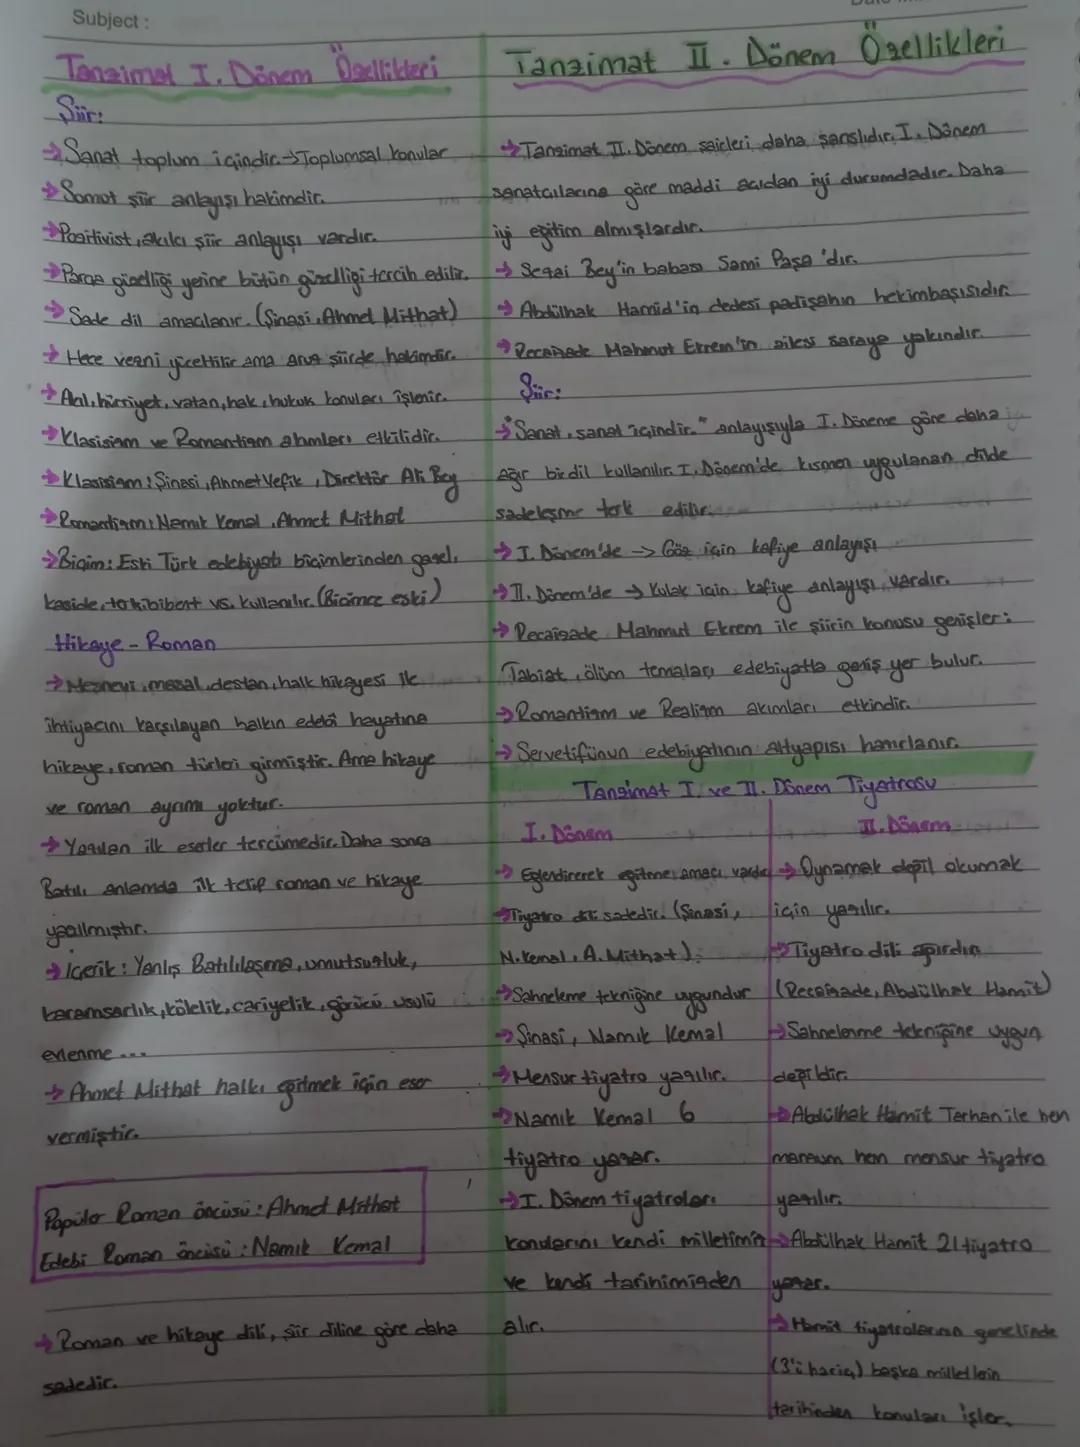 Subject :
Tanzimat I. Dönem Özellikleri
Şiir:
→ Sanat toplum içindir.→Toplumsal konular
→ Somut şiir anlayışı hakimdir.
→ Pozitivist, akılcı şiir anlayışı vardır.
→ Parça güzelliği yerine bütün güzelliği tercih edilir.
→ Sade dil amaçlanır. (Şinasi, Ahmet Mithat)
→ Hece vezni yüceltilir ama aruz şiirde hakimdir.
→ Akıl, hürriyet, vatan, hak, hukuk konuları işlenir.
→ Klasisizm ve Romantizm akımları etkilidir.
→ Klasisizm: Şinasi, Ahmet Vefik, Direktör Ali Bey
→ Romantizm: Namık Kemal, Ahmet Mithat
→ Biçim: Eski Türk edebiyatı biçimlerinden gazel,
kaside, terkibibent vs. kullanılır. (Biçimce eski)
Hikaye - Roman
→ Mesnevi, masal, destan, halk hikayesi ilk
ihtiyacını karşılayan halkın edebi hayatına
hikaye, roman türleri girmiştir. Ama hikaye
ve roman ayrımı yoktur.
→ Yazılan ilk eserler tercümedir. Daha sonra
Batılı anlamda ilk telif roman ve hikaye
yazılmıştır.
→ İçerik: Yanlış Batılılaşma, umutsuzluk,
karamsarlık, kölelik, cariyelik, görücü usulü
evlenme ...
→ Ahmet Mithat halkı eğitmek için eser
vermiştir.
Popüler Roman öncüsü: Ahmet Mithat
Edebi Roman öncüsü: Namık Kemal
→ Roman ve hikaye dili, şiir diline göre daha
sadedir.
Tanzimat II. Dönem Özellikleri
→ Tanzimat II. Dönem şairleri daha şanslıdır. I. Dönem
sanatçılarına göre maddi açıdan iyi durumdadır. Daha
iyi eğitim almışlardır.
→ Sezai Bey'in babası Sami Paşa'dır.
→ Abdülhak Hamid'in dedesi padişahın hekimbaşısıdır.
→ Recaizade Mahmut Ekrem'in ailesi saraya yakındır.
Şiir:
→ "Sanat, sanat içindir." anlayışıyla I. Döneme göre daha
ağır bir dil kullanılır. I. Dönem'de kısmen uygulanan dilde
sadeleşme terk edilir.
→ I. Dönem'de → Göz için kafiye anlayışı
→ II. Dönem'de → Kulak için kafiye anlayışı vardır.
→ Recaizade Mahmut Ekrem ile şiirin konusu genişler:
Tabiat, ölüm temaları edebiyatta geniş yer bulur.
→ Romantizm ve Realizm akımları etkindir.
→ Servetifünun edebiyatının altyapısı hazırlanır.
Tanzimat I. ve II. Dönem Tiyatrosu
I. Dönem
→ Eğlendirerek eğitme amacı vardır
→ Tiyatro dili sadedir. (Şinasi,
N. Kemal, A. Mithat)
→ Sahneleme tekniğine uygundur
→ Şinasi, Namık Kemal
→ Mensur tiyatro yazılır.
→ Namık Kemal 6
tiyatro yazar.
→ I. Dönem tiyatroları
konularını kendi milletimiz
ve kendi tarihimizden
alır.
II. Dönem
→ Oynamak değil okumak
için yazılır.
→ Tiyatro dili ağırdır.
(Recaizade, Abdülhak Hamit)
→ Sahnelenme tekniğine uygun
değildir.
→ Abdülhak Hamit Tarhan ile hen
manzum hen mensur tiyatro
yazılır.
→ Abdülhak Hamit 21 tiyatro
yazar.
→ Hamit tiyatrolarının genelinde
(3'ü hariç) başka milletlerin
tarihinden konuları işler.